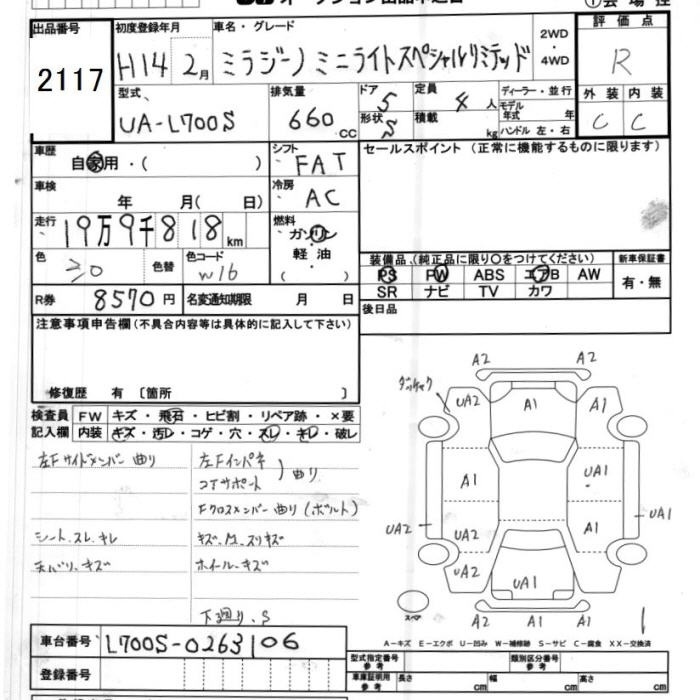 出品番号 初度登録年月 車名・グレード 評価点
2117 H14 2月 ミラジーノ ミニライトスペシャルリミテッド 2WD・4WD R
型式 排気量 ドア 5 定員 4人 ディーラー・並行 外装 内装
UA-L700S 660 CC 形状 S 積載 kg モデル年式 年 C C
ハンドル 左・右
車歴 自家用・( ) シフト FAT セールスポイント (正常に機能するものに限ります)
車検 年 月( 日) 冷房 AC
走行 19万9千818km 燃料 ガソリン・軽油 ( )
色 色替 色コード W16 装備品、(純正品に限り○をつけてください) 新車保証書
PS PW ABS エアB AW 有・無
R券 8570円 名変通知期限 月 日 SR ナビ TV カワ
注意事項申告欄 (不具合内容等は具体的に記入して下さい) 後日品
修復歴 有 〔箇所 〕
検査員 FW キズ・飛石・ヒビ割・リペア跡・×要
記入欄 内装 キズ・汚レ・コゲ・穴・スレ・キレ・破レ
左Fサイドメンバー曲り 左Fインパネ
コアサポート 曲り
Fクロスメンバー曲り(ボルト)
シート、スレ、キレ
天バリ、キズ ホイール、キズ
下廻り、S
A2 A2
UA2 A1 A1
A1 UA1
UA2 UA2 A1 UA1
UA2 UA1
スペア A2 A1 A1
A-キズ E-エクボ U-凹み W-補修跡 S-サビ C-腐食 XX-交換済
車台番号 L700S-0263106
登録番号
型式指定番号 参考 類別区分番号 参考
車庫証明用 参考 長さ cm 幅 cm 高さ cm